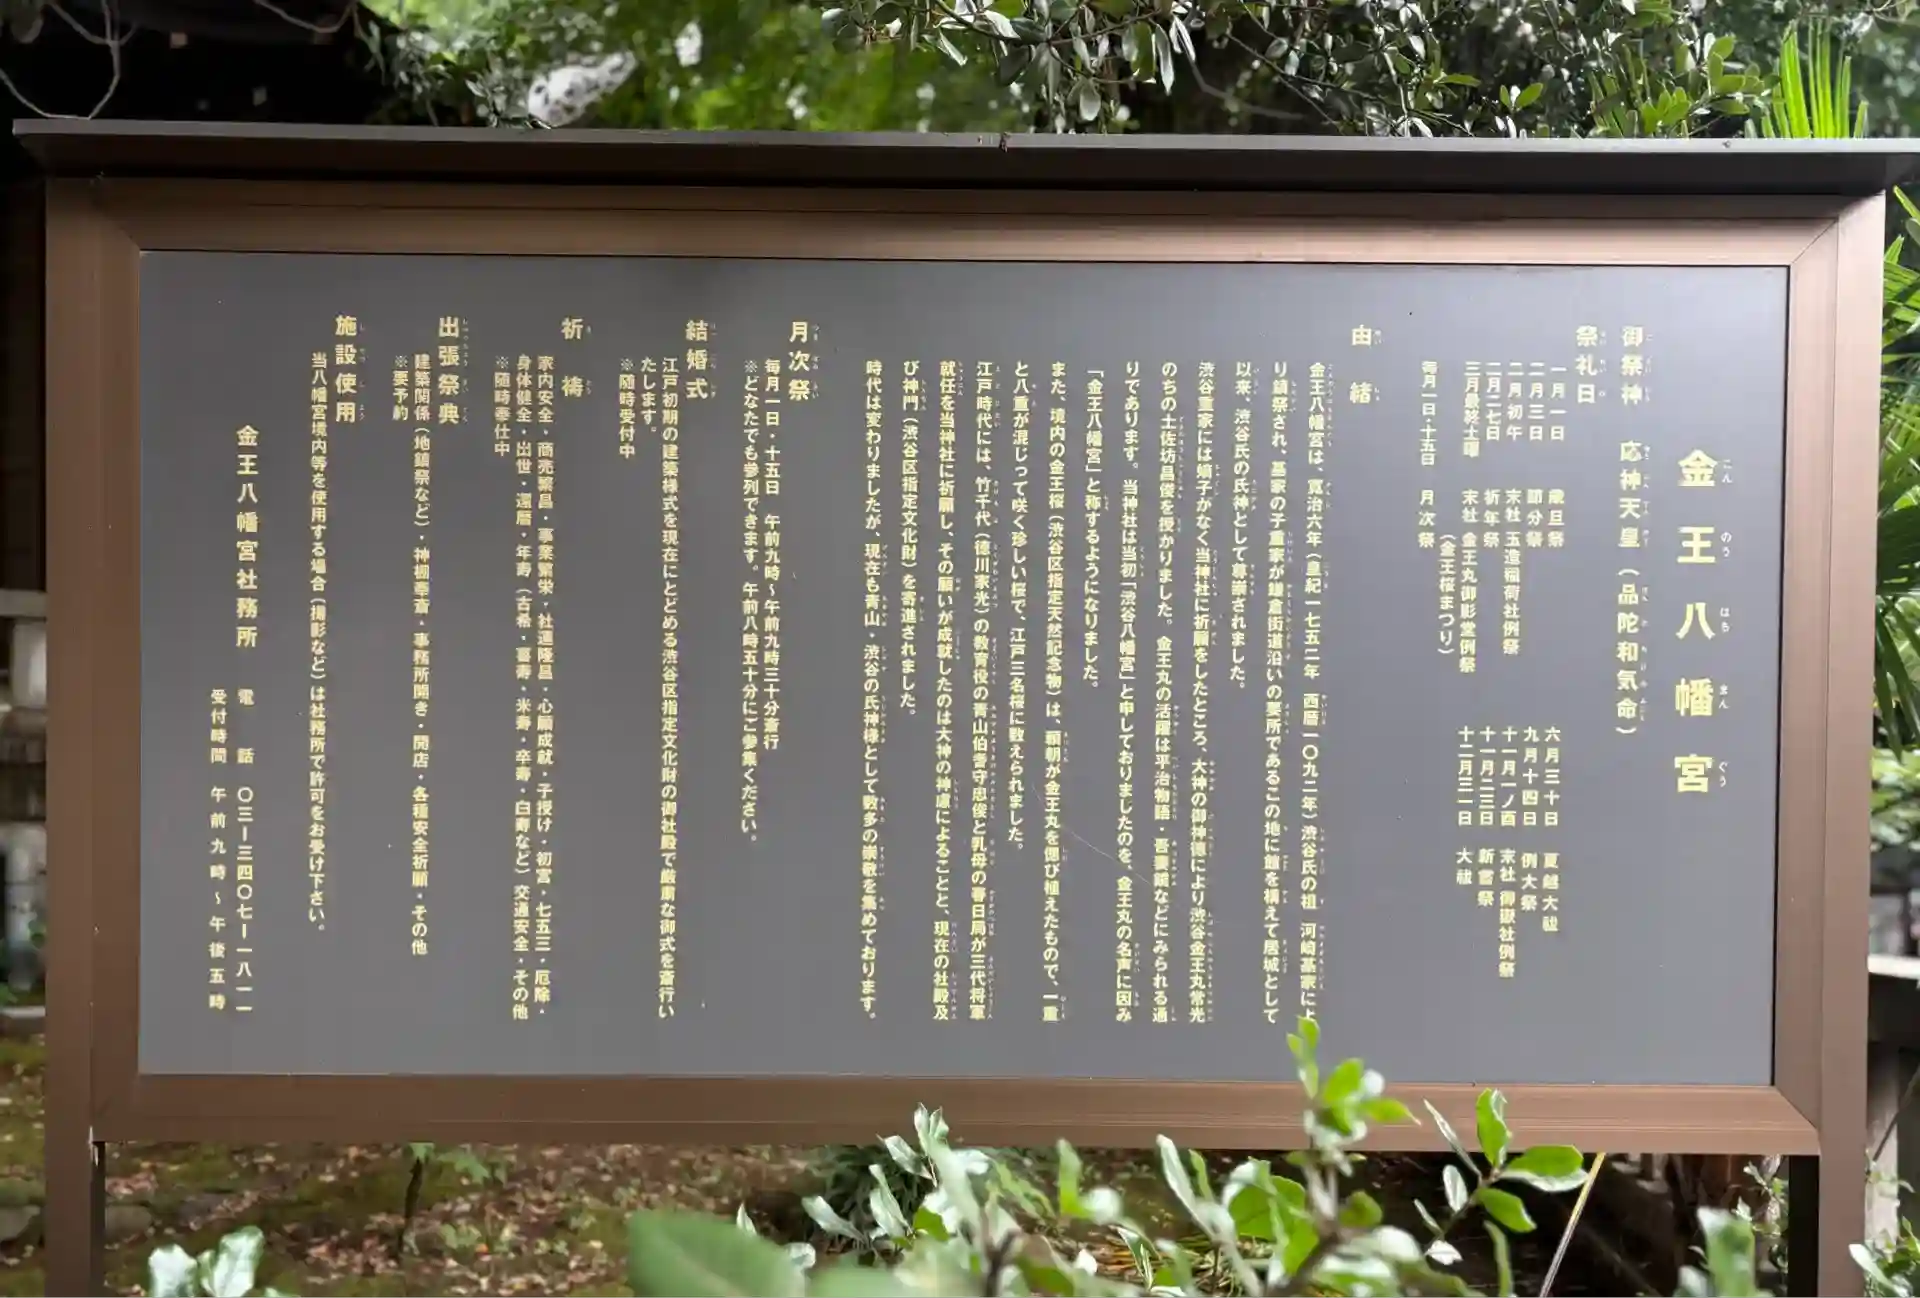 金王八幡宮
御祭神　応神天皇（品陀和気命）
祭礼日
一月一日　歳旦祭
二月三日　節分祭
二月初午　末社 玉造稲荷社例祭
二月二七日　祈年祭
三月最終土曜　末社 金王丸御影堂例祭
（金王桜まつり）
毎月一日・十五日　月次祭
六月三十日　夏越大祓
九月十四日　例大祭
十一月一ノ酉　末社 御嶽社例祭
十一月二三日　新嘗祭
十二月三一日　大祓
由緒
金王八幡宮は、寛治六年（皇紀一七五二年　西暦一〇九二年）渋谷氏の祖　河崎基家によ
り鎮祭され、基家の子重家が鎌倉街道沿いの要所であるこの地に館を構えて居城として
以来、渋谷氏の氏神として尊崇されました。
渋谷重家には嫡子がなく当神社に祈願をしたところ、大神の御神徳により渋谷金王丸常光
のちの土佐坊昌俊を授かりました。金王丸の活躍は平治物語・吾妻鏡などにみられる通
りであります。当神社は当初「渋谷八幡宮」と申しておりましたのを、金王丸の名声に因み
「金王八幡宮」と称するようになりました。
また、境内の金王桜（渋谷区指定天然記念物）は、頼朝が金王丸を偲び植えたもので、一重
と八重が混じって咲く珍しい桜で、江戸三名桜に数えられました。
江戸時代には、竹千代（徳川家光）の教育役の青山伯耆守忠俊と乳母の春日局が三代将軍
就任を当神社に祈願し、その願いが成就したのは大神の神慮によることと、現在の社殿及
び神門（渋谷区指定文化財）を寄進されました。
時代は変わりましたが、現在も青山・渋谷の氏神様として数多の崇敬を集めております。
月次祭
毎月一日・十五日　午前九時〜午前九時三十分斎行
※どなたでも参列できます。午前八時五十分にご参集ください。
結婚式
江戸初期の建築様式を現在にとどめる渋谷区指定文化財の御社殿で厳粛な御式を斎行い
たします。
※随時受付中
祈祷
家内安全・商売繁昌・事業繁栄・社運隆昌・心願成就・子授け・初宮・七五三・厄除・
身体健全・出世・還暦・年寿（古希・喜寿・米寿・卒寿・白寿など）交通安全・その他
※随時奉仕中
出張祭典
建築関係（地鎮祭など）・神棚奉斎・事務所開き・開店・各種安全祈願・その他
※要予約
施設使用
当八幡宮境内等を使用する場合（撮影など）は社務所で許可をお受け下さい。
金王八幡宮社務所　電話　〇三ー三四〇七ー一八一一
受付時間　午前九時〜午後五時